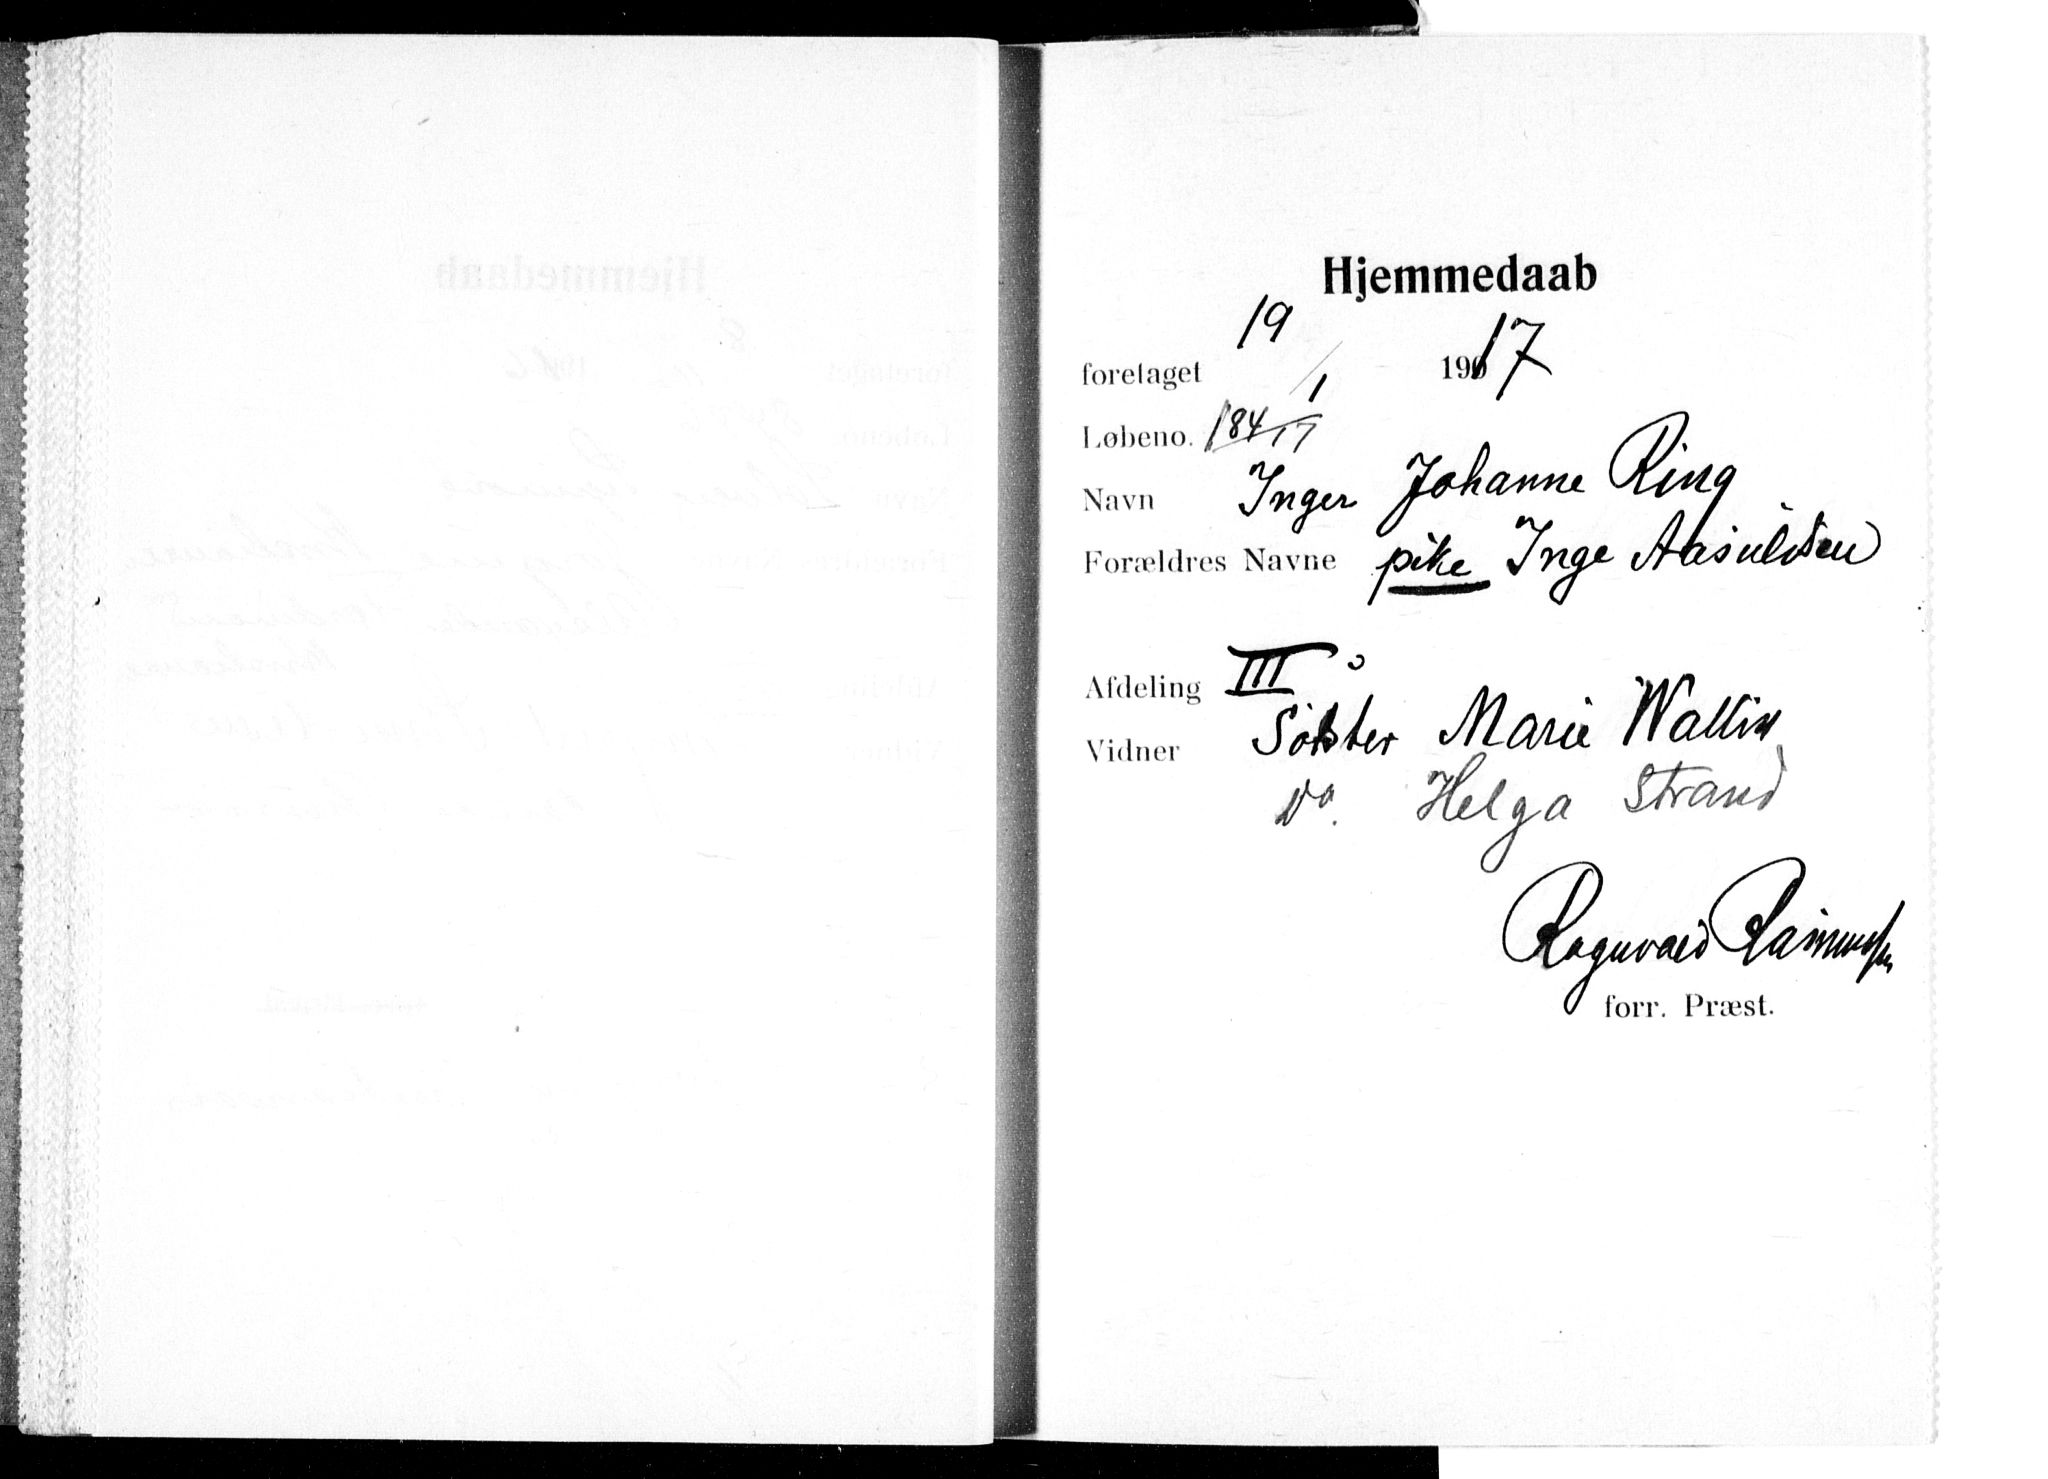 Hjemmedaab
foretaget 19/1 1917
Løbeno. 184/17
Navn Inger Johanne Ring
Forældres Navne pike Inge Aasuldsen
Afdeling III
Vidner Søster Marie Wallin
Do. Helga Strand
Ragnvald Rasmussen
forr. Præst.